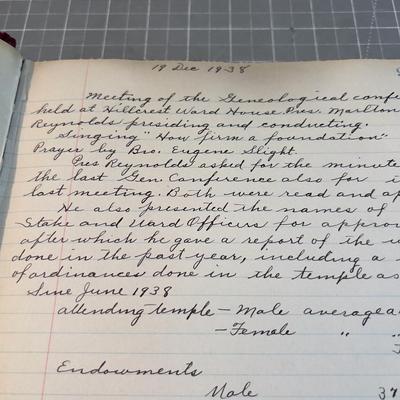 19 Dec 1938
Meeting of the Geneological confe
held at Hillcrest Ward House. Pres. Marlton
Reynolds presiding and conducting.
Singing "How firm a foundation"
Prayer by Bro. Eugene Slight.
Pres Reynolds asked for the minute
the last Gen. Conference also for
last meeting. Both were read and ap
He also presented the names of
Stake and Ward Officers for approv
after which he gave a report of the w
done in the past year, including a
of ordinances done in the temple as
Sine June 1938
attending temple - Male average a
- Female " "
Endowments
Male 37